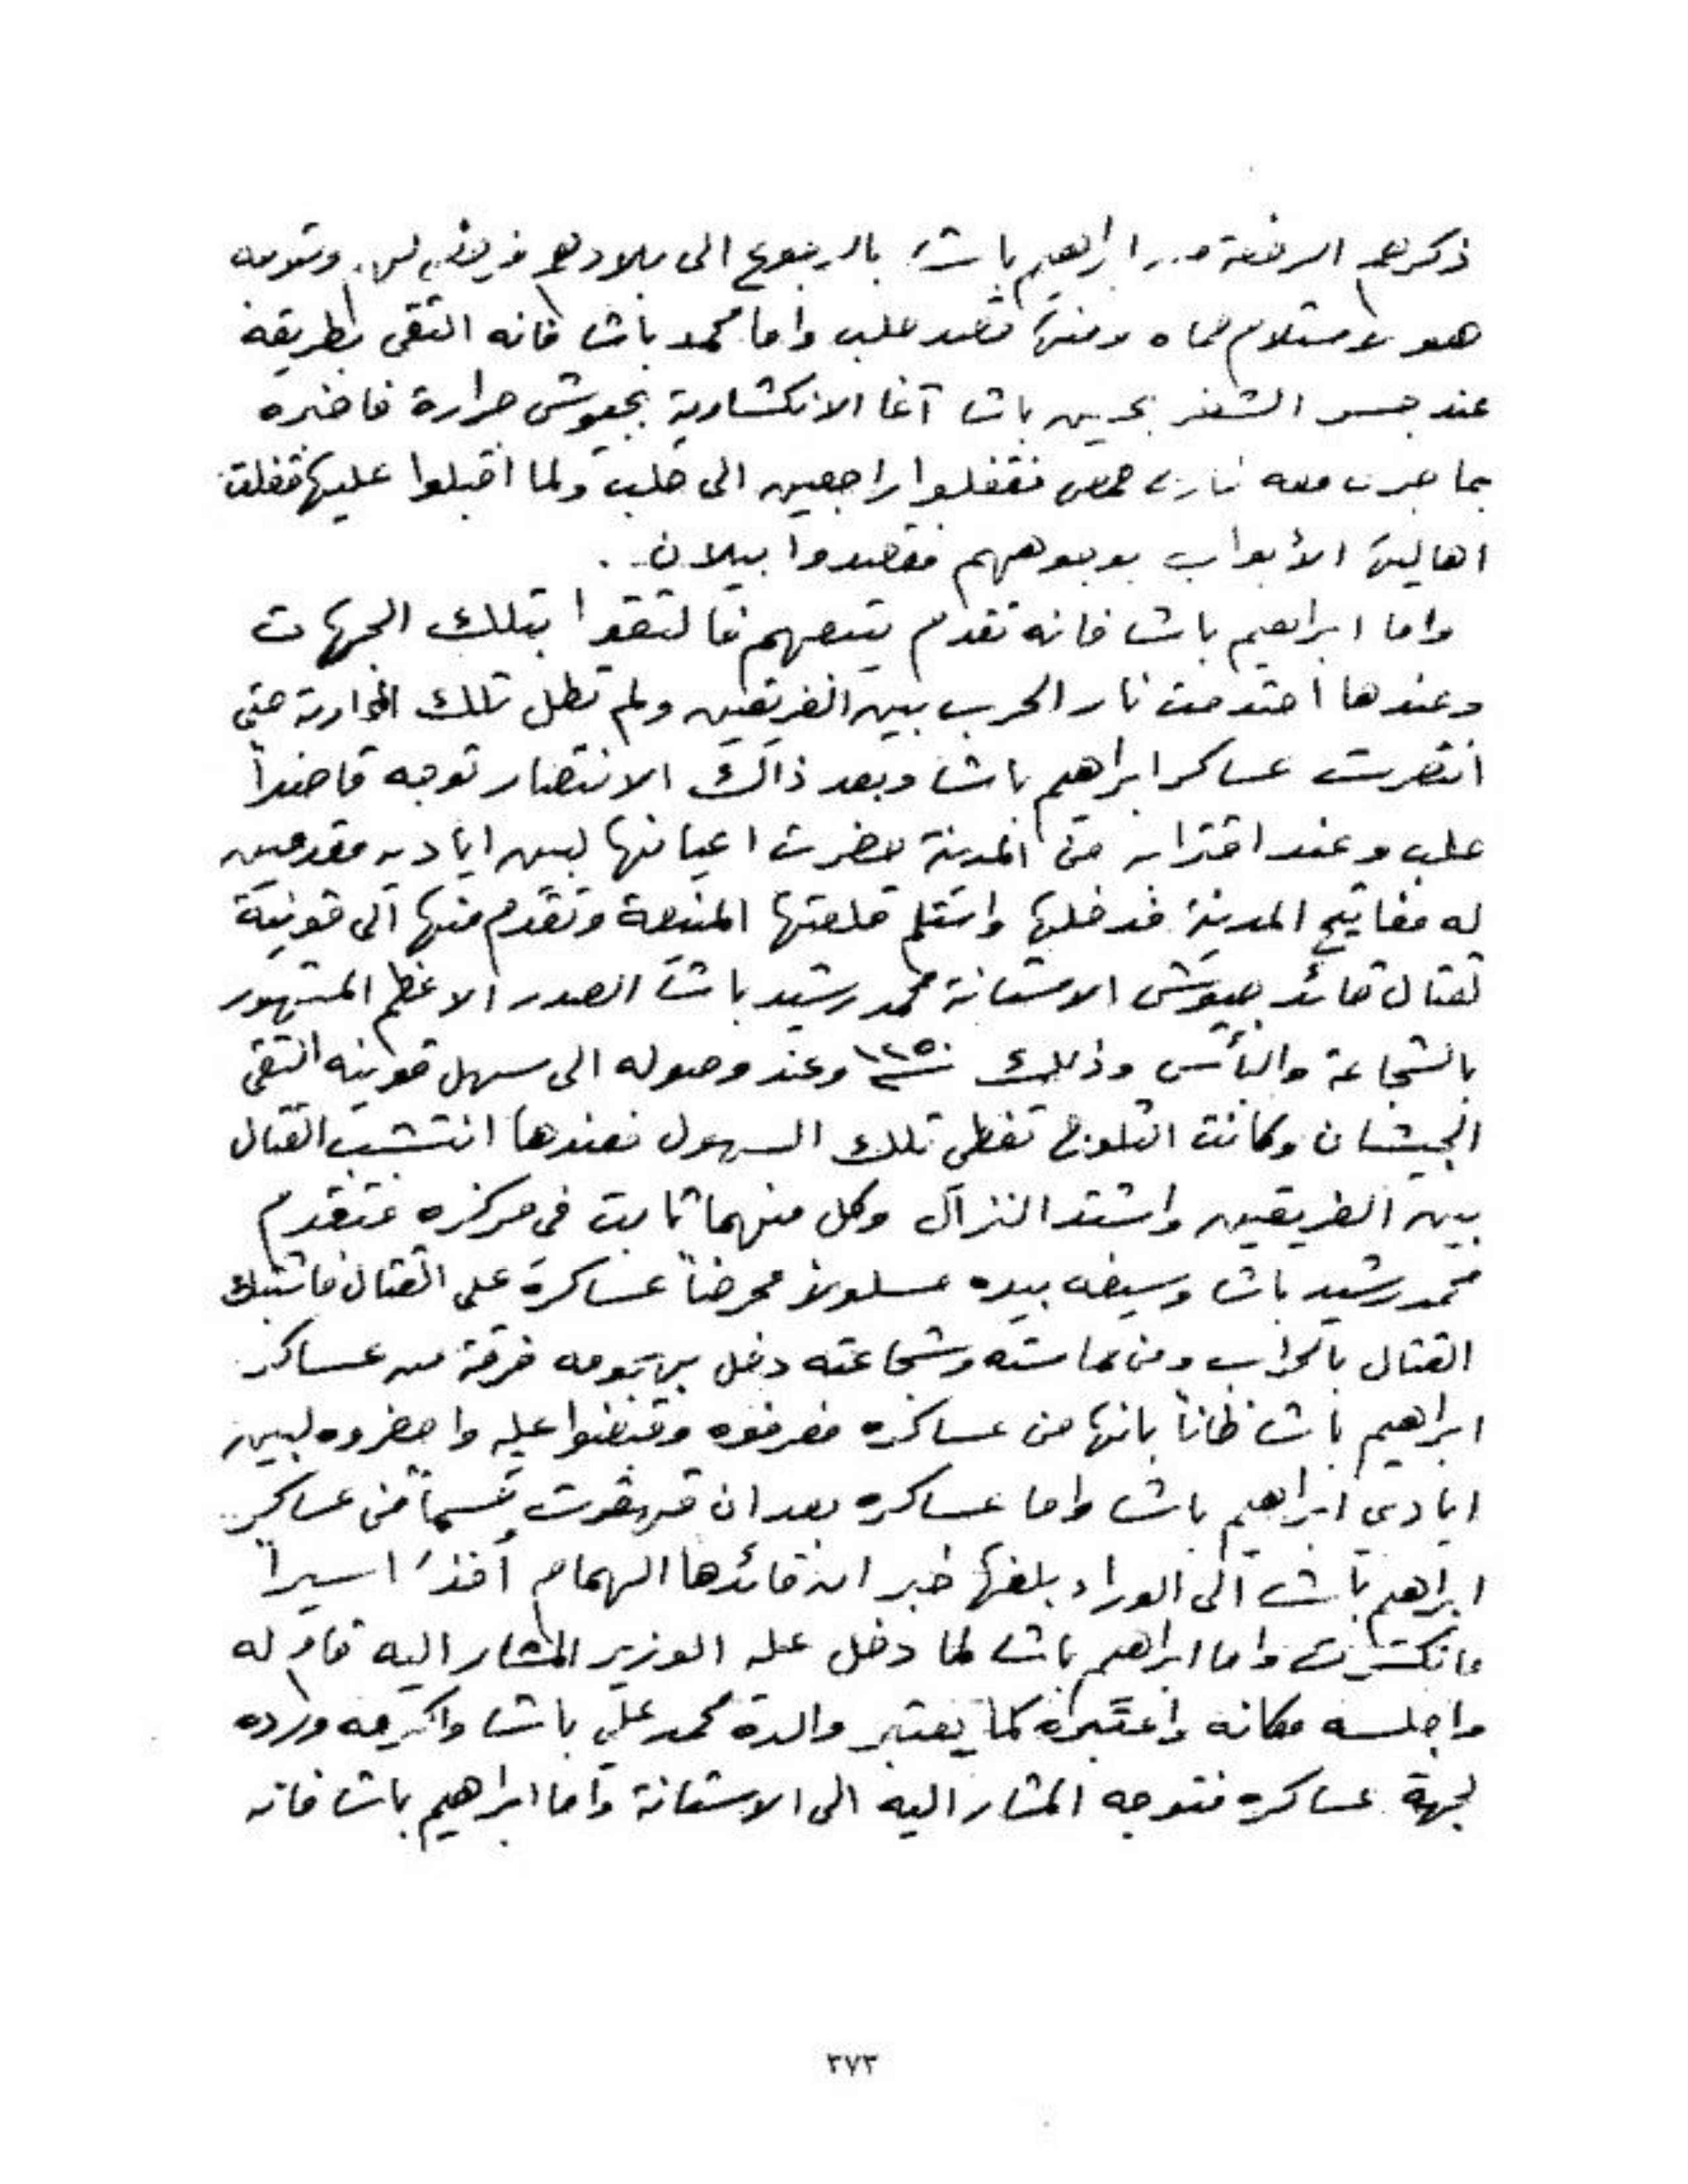 ذكرهم الرخصة من ابراهيم باشا بالرجوع الى بلادهم وتوجه
هو لاستلام حماه ومنها قصد حلب واما محمد باشا فانه التقى بطريقه
عند جسر الشغر بحسين باشا آغا الانكشارية بجيوش جرارة فاخبره
بما جرى معه نهار حمص فقفلوا راجعين الى حلب ولما اقبلوا عليها قفلت
اهاليها الأبواب بوجوههم فقصدوا بيلان .
واما ابراهيم باشا فانه تقدم يتبعهم فالتقوا بتلك الجهات
وعندها احتدمت نار الحرب بين الفريقين ولم تطل تلك المحاربة حتى
انتصرت عساكر ابراهيم باشا وبعد ذاك الانتصار توجه قاصداً
حلب وعند اقترابه من المدينة حضرت اعيانها لبين اياديه مقدمين
له مفاتيح المدينة فدخلها واستلم قلعتها المنيعة وتقدم منها الى قونية
لقتال قائد جيوش الاستانة محمد رشيد باشا الصدر الاعظم المشهور
بالشجاعة والبأس وذلك سنة ١٢٥٠ وعند وصوله الى سهل قونيه التقى
الجيشان وكانت الثلوج تغطي تلك السهول فعندها انتشب القتال
بين الفريقين واشتد النزال وكل منهما ثابت في مركزه فتقدم
محمد رشيد باشا وسيفه بيده مسلولاً محرضاً عساكره على القتال فاشتبك
القتال بالحراب ومن حماسته وشجاعته دخل بهجومه فرقة من عساكر
ابراهيم باشا ظاناً بانها من عساكره فعرفوه وقبضوا عليه واحضروه لبين
ايادي ابراهيم باشا واما عساكره بعد ان قهقرت قسماً من عساكر
ابراهيم باشا الى الوراء بلغها خبر ان قائدها الهمام أخذ اسيراً
فانكسرت واما ابراهيم باشا لما دخل عليه الوزير المشار اليه قام له
واجلسه مكانه واعتبره كما يعتبر والده محمد علي باشا واكرمه ورده
لجهة عساكره فتوجه المشار اليه الى الاستانة واما ابراهيم باشا فانه
٣٧٣